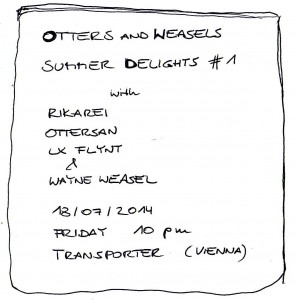 OTTERS AND WEASELS
SUMMER DELIGHTS #1
with
RIKAREI
OTTERSAN
LX FLYNT
&
WAYNE WEASEL
18/07/2014
FRIDAY 10 pm
TRANSPORTER (VIENNA)